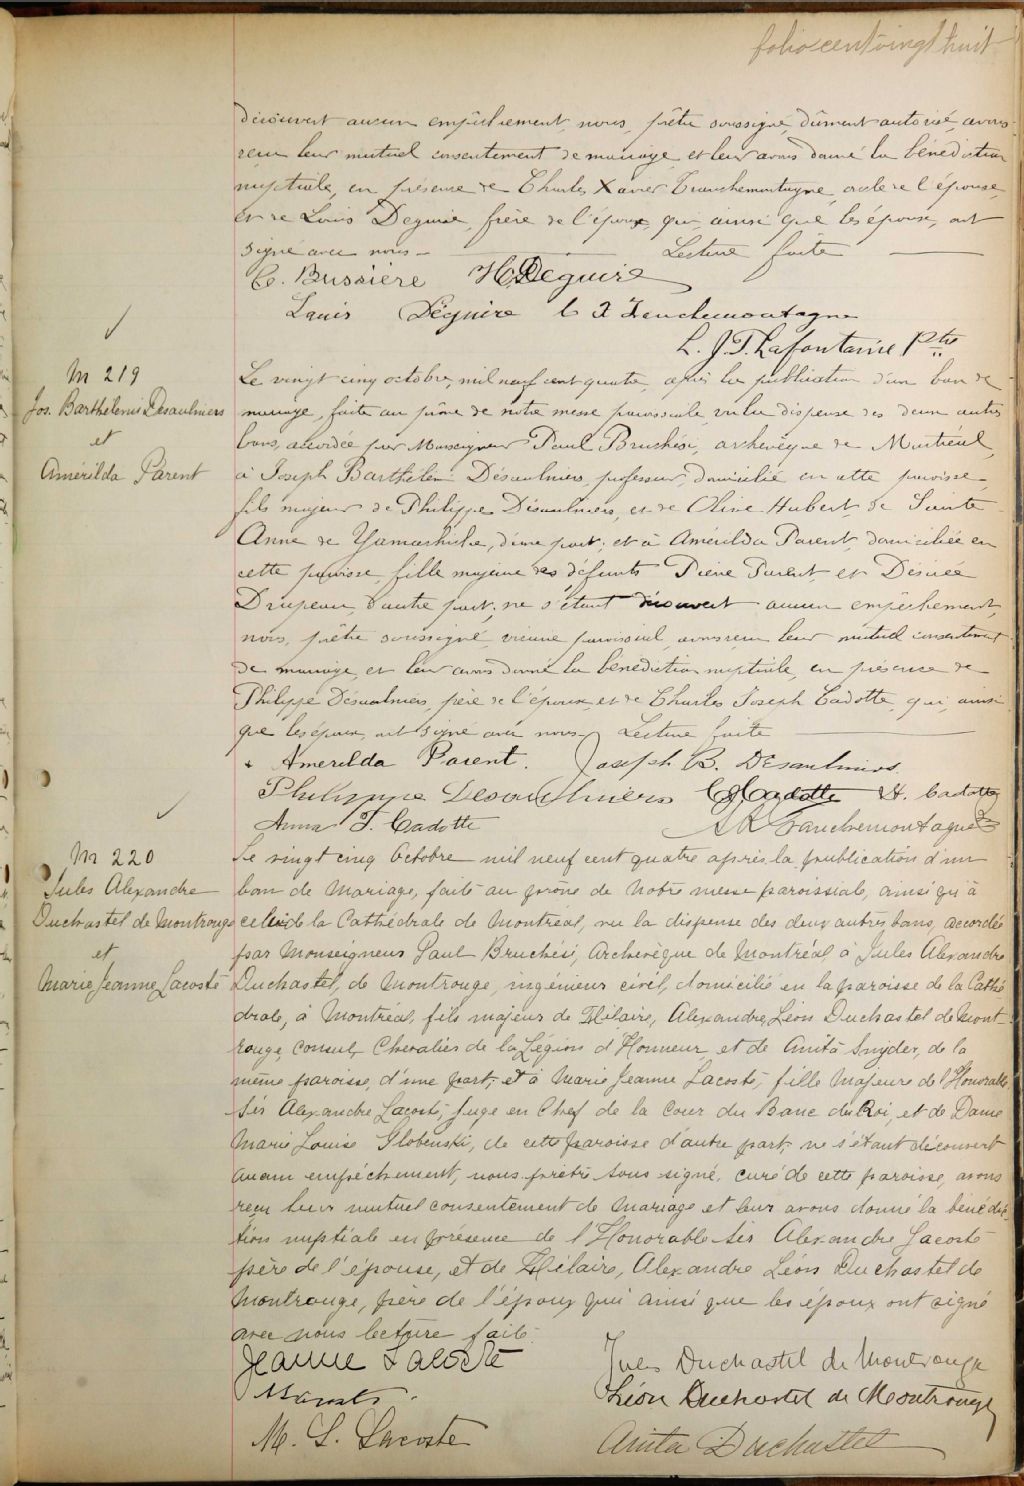 folio cent vingt huit
découvert aucun empêchement, nous, prêtre soussigné, dûment autorisé, avons
reçu leur mutuel consentement de mariage et leur avons donné la bénédiction
nuptiale, en présence de Charles Xavier Tranchemontagne, oncle de l'épouse,
et de Louis Deguire, frère de l'époux, qui, ainsi que les époux, ont
signé avec nous. Lecture faite
C. Bussière H. Deguire
Louis Déguire C X Tranchemontagne
L. J. T. Lafontaine Ptre
M 219
Jos. Barthélemi Desaulniers
et
Amérilda Parent
Le vingt cinq octobre, mil neuf cent quatre, après la publication d'un ban de
mariage, faite au prône de notre messe paroissiale, vu la dispense des deux autres
bans, accordée par Monseigneur Paul Bruchési, archevêque de Montréal,
à Joseph Barthélemi Désaulniers, professeur, domicilié en cette paroisse
fils majeur de Philippe Désaulniers, et de Olive Hubert, de Sainte
Anne de Yamachiche, d'une part; et à Amérilda Parent, domiciliée en
cette paroisse, fille majeure des défunts Pierre Parent et Désirée
Drapeau, d'autre part; ne s'étant découvert aucun empêchement,
nous, prêtre soussigné, vicaire paroissial, avons reçu leur mutuel consentement
de mariage et leur avons donné la bénédiction nuptiale, en présence de
Philippe Désaulniers, père de l'époux, et de Charles Joseph Cadotte, qui, ainsi
que les époux, ont signé avec nous. Lecture faite
Amerilda Parent. Joseph B. Désaulniers.
Philippe Desaulniers Cadotte H. Cadotte
Anna T. Cadotte Tranchemontagne
M 220
Jules Alexandre
Duchastel de Montrouge
et
Marie Jeanne Lacoste
Le vingt cinq Octobre mil neuf cent quatre après la publication d'un
ban de Mariage, faite au prône de Notre messe paroissiale, ainsi qu'à
celui de la Cathédrale de Montréal, vu la dispense des deux autres bans, accordée
par Monseigneur Paul Bruchési, Archevêque de Montréal à Jules Alexandre
Duchastel, de Montrouge, ingénieur civil, domicilié en la paroisse de la Cathé
drale, à Montréal, fils majeur de Hilaire, Alexandre, Léon Duchastel de Mont-
rouge, Consul, Chevalier de la Légion d'Honneur et de Anita Snyder, de la
même paroisse, d'une part; et à Marie Jeanne Lacoste, fille Majeure de l'Honorable
Sir Alexandre Lacoste, Juge en Chef de la Cour du Banc du Roi, et de Dame
Marie Louise Globenski, de cette paroisse d'autre part; ne s'étant découvert
aucun empêchement, nous prêtre sous signé, curé de cette paroisse, avons
reçu leur mutuel consentement de Mariage et leur avons donné la bénédic
tion nuptiale en présence de l'Honorable Sir Alexandre Lacoste
père de l'épouse, et de Hilaire, Alexandre Léon Duchastel de
Montrouge, père de l'époux qui ainsi que les époux ont signé
avec nous lecture faite.
Jeanne Lacoste Jules Duchastel de Montrouge
Léon Duchastel de Montrouge
M. L. Lacoste Anita Duchastel